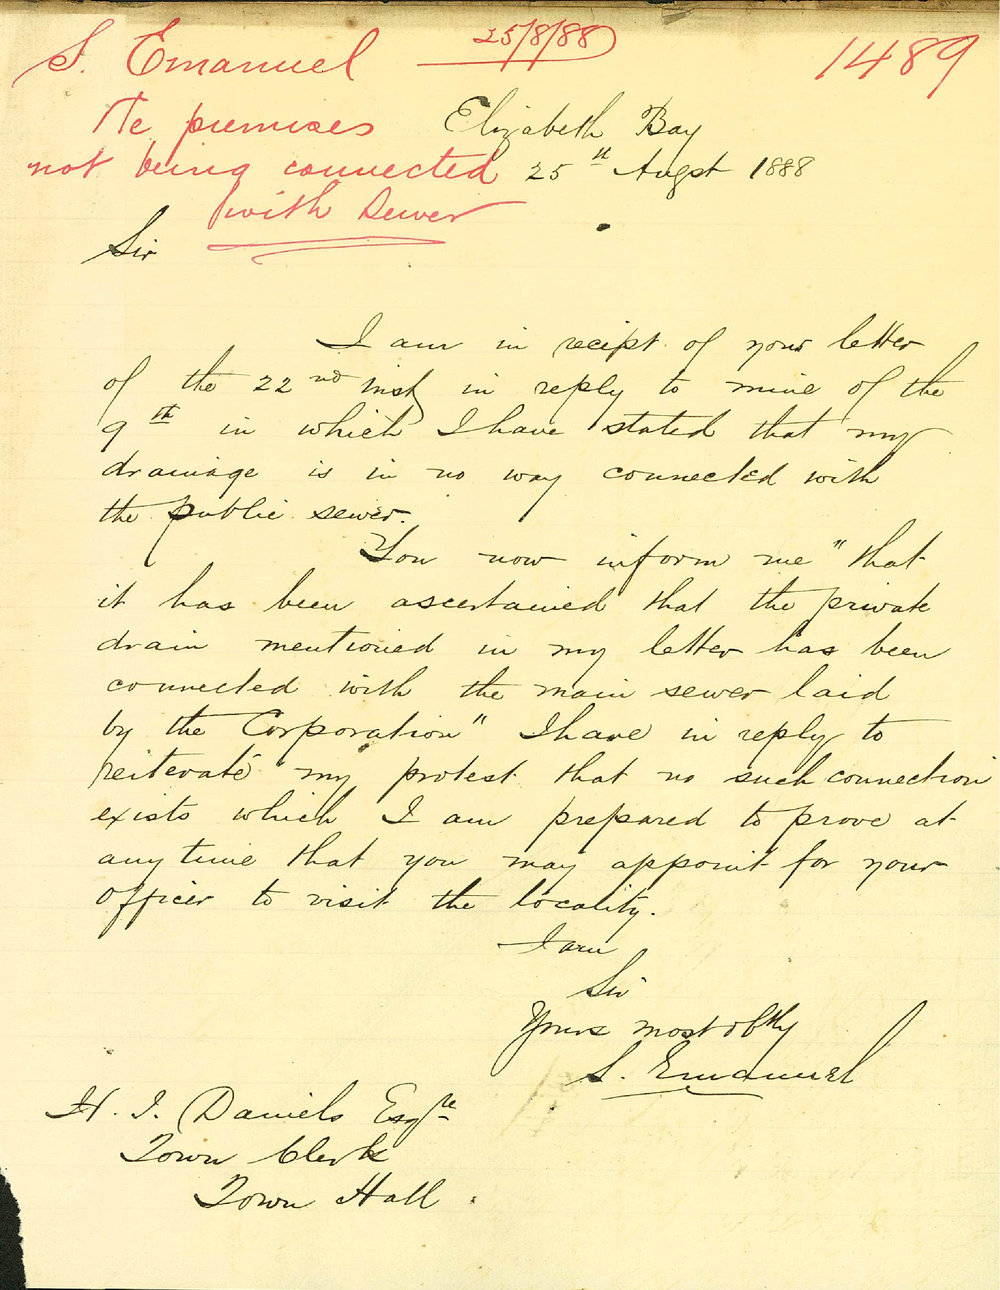 S. Emanuel
25/8/88
1489
Re premises
not being connected
with Sewer
Elizabeth Bay
25th Augst 1888
Sir
I am in reciept of your letter
of the 22nd inst in reply to mine of the
9th in which I have stated that my
drainage is in no way connected with
the public sewer.
You now inform me "that
it has been ascertained that the private
drain mentioned in my letter has been
connected with the main sewer laid
by the Corporation" I have in reply to
reiterate my protest that no such connection
exists which I am prepared to prove at
any time that you may appoint for your
officer to visit the locality.
I am
Sir
Yours most obtly
S. Emanuel
H. J. Daniels Esqre
Town Clerk
Town Hall.